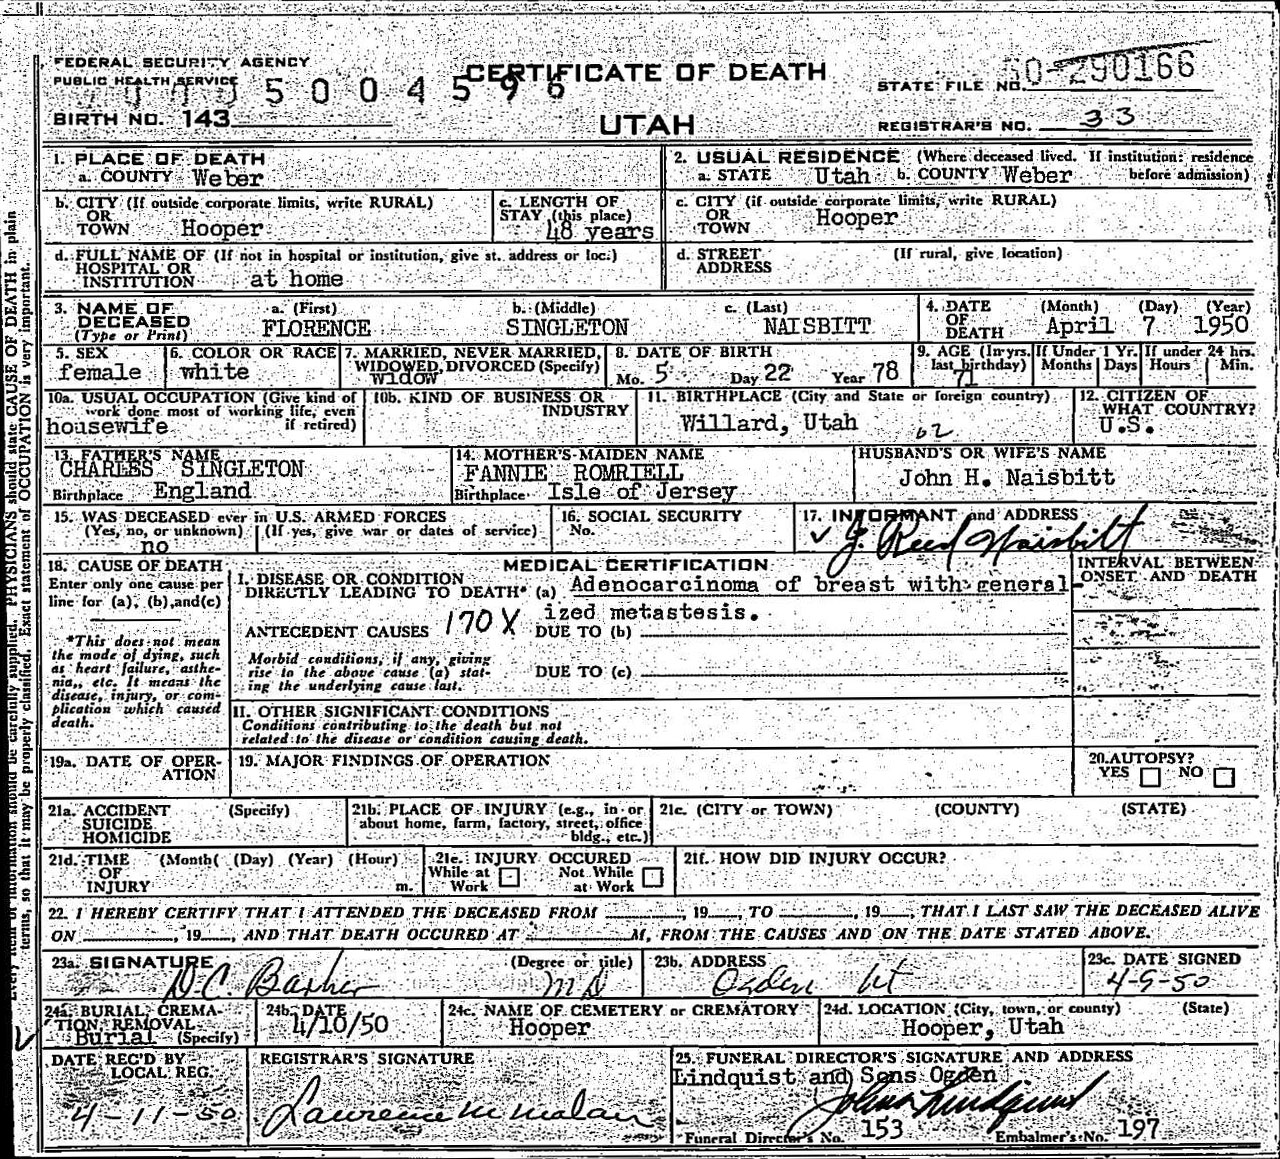 FEDERAL SECURITY AGENCY
PUBLIC HEALTH SERVICE
CERTIFICATE OF DEATH
UTAH
5 0 0 4 5 9 6
BIRTH NO. 143
STATE FILE NO. 50-290166
REGISTRAR'S NO. 33
1. PLACE OF DEATH
a. COUNTY Weber
2. USUAL RESIDENCE (Where deceased lived. If institution: residence before admission)
a. STATE Utah b. COUNTY Weber
b. CITY (If outside corporate limits, write RURAL)
OR
TOWN Hooper
c. LENGTH OF
STAY (this place)
48 years
c. CITY (if outside corporate limits, write RURAL)
OR
TOWN Hooper
d. FULL NAME OF (If not in hospital or institution, give st. address or loc.)
HOSPITAL OR
INSTITUTION at home
d. STREET (If rural, give location)
ADDRESS
3. NAME OF
DECEASED
(Type or Print)
a. (First) b. (Middle) c. (Last)
FLORENCE SINGLETON NAISBITT
4. DATE
OF
DEATH
(Month) (Day) (Year)
April 7 1950
5. SEX
female
6. COLOR OR RACE
white
7. MARRIED, NEVER MARRIED,
WIDOWED, DIVORCED (Specify)
widow
8. DATE OF BIRTH
Mo. 5 Day 22 Year 78
9. AGE (In yrs.
last birthday)
71
If Under 1 Yr.
Months Days
If under 24 hrs.
Hours Min.
10a. USUAL OCCUPATION (Give kind of
work done most of working life, even
if retired)
housewife
10b. KIND OF BUSINESS OR
INDUSTRY
11. BIRTHPLACE (City and State or foreign country)
Willard, Utah 62
12. CITIZEN OF
WHAT COUNTRY?
U.S.
13. FATHER'S NAME
CHARLES SINGLETON
Birthplace England
14. MOTHER'S MAIDEN NAME
FANNIE ROMRIELL
Birthplace Isle of Jersey
HUSBAND'S OR WIFE'S NAME
John H. Naisbitt
15. WAS DECEASED ever in U.S. ARMED FORCES
(Yes, no, or unknown) (If yes, give war or dates of service)
no
16. SOCIAL SECURITY
No.
17. INFORMANT and ADDRESS
J. Reed Naisbitt
18. CAUSE OF DEATH
Enter only one cause per
line for (a), (b), and (c)
*This does not mean
the mode of dying, such
as heart failure, asthe-
nia, etc. It means the
disease, injury, or com-
plication which caused
death.
MEDICAL CERTIFICATION
I. DISEASE OR CONDITION
DIRECTLY LEADING TO DEATH* (a) Adenocarcinoma of breast with general-
ized metastesis.
ANTECEDENT CAUSES 170X DUE TO (b)
Morbid conditions, if any, giving
rise to the above cause (a) stat-
ing the underlying cause last.
DUE TO (c)
INTERVAL BETWEEN
ONSET AND DEATH
II. OTHER SIGNIFICANT CONDITIONS
Conditions contributing to the death but not
related to the disease or condition causing death.
19a. DATE OF OPER-
ATION
19. MAJOR FINDINGS OF OPERATION
20. AUTOPSY?
YES NO
21a. ACCIDENT (Specify)
SUICIDE
HOMICIDE
21b. PLACE OF INJURY (e.g., in or
about home, farm, factory, street, office
bldg., etc.)
21c. (CITY or TOWN) (COUNTY) (STATE)
21d. TIME (Month( (Day) (Year) (Hour)
OF
INJURY m.
21e. INJURY OCCURED
While at Not While
Work at Work
21f. HOW DID INJURY OCCUR?
22. I HEREBY CERTIFY THAT I ATTENDED THE DECEASED FROM , 19 , TO , 19 , THAT I LAST SAW THE DECEASED ALIVE
ON , 19 , AND THAT DEATH OCCURED AT M, FROM THE CAUSES AND ON THE DATE STATED ABOVE.
23a. SIGNATURE (Degree or title)
D.C. Barker MD
23b. ADDRESS
Ogden Ut
23c. DATE SIGNED
4-9-50
24a. BURIAL, CREMA-
TION, REMOVAL
Burial (Specify)
24b. DATE
4/10/50
24c. NAME OF CEMETERY or CREMATORY
Hooper
24d. LOCATION (City, town, or county) (State)
Hooper, Utah
DATE REC'D BY
LOCAL REG.
4-11-50
REGISTRAR'S SIGNATURE
Laurence M Malan
25. FUNERAL DIRECTOR'S SIGNATURE AND ADDRESS
Lindquist and Sons Ogden
Funeral Director's No. 153 Embalmer's No. 197
Every item of information should be carefully supplied. PHYSICIANS should state CAUSE OF DEATH in plain
terms, so that it may be properly classified. Exact statement of OCCUPATION is very important.